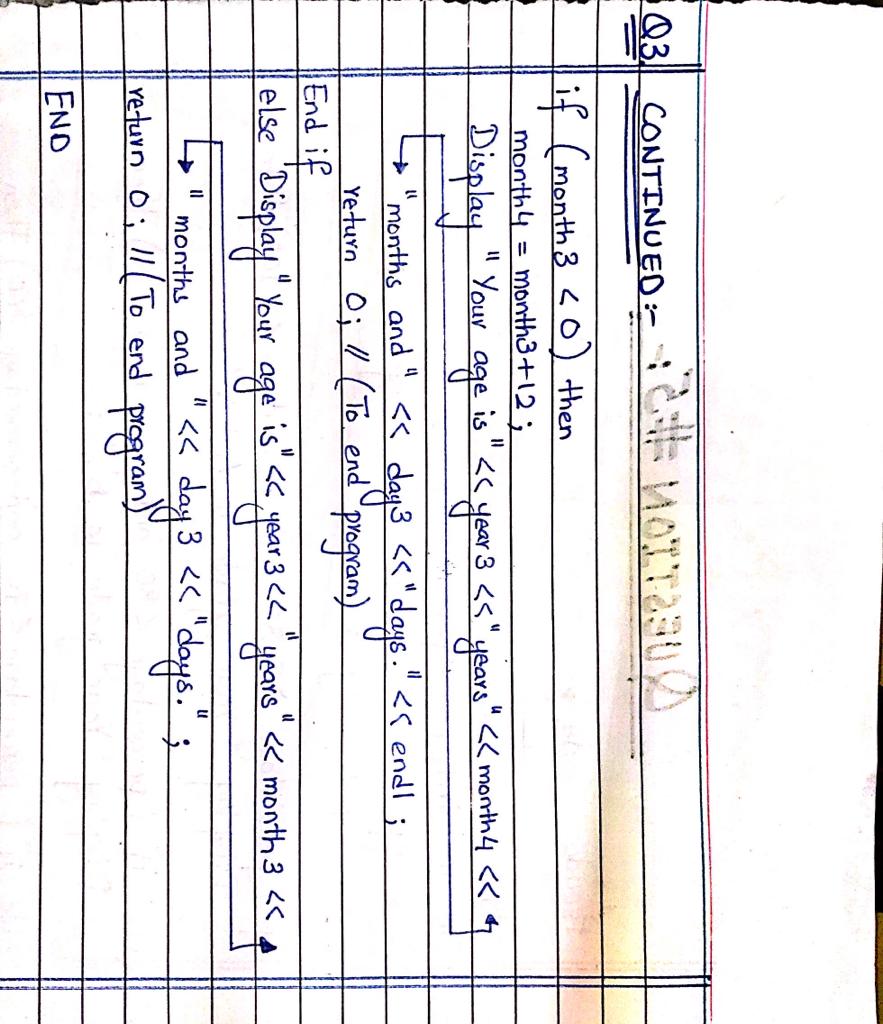 Q3. CONTINUED:-
if (month3 <0) then
month4 = month3+12;
Display "Your age is" << year3 << "years" << month4 <<
"months and" << day3 << "days." << endl;
return 0; // (To end program)
End if
else Display "Your age is" << year3 << "years" << month3 <<
"months and" << day3 << "days.";
return 0; // (To end program)
END
QUESTION #5:-